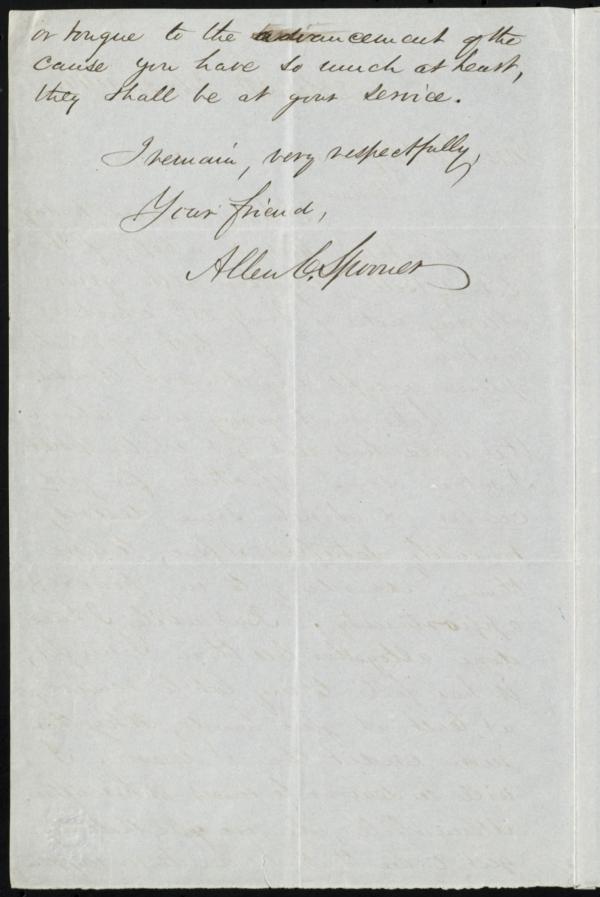 or tongue to the advancement of the
cause you have so much at heart,
they shall be at your service.
I remain, very respectfully,
Your friend,
Allen C. Spooner